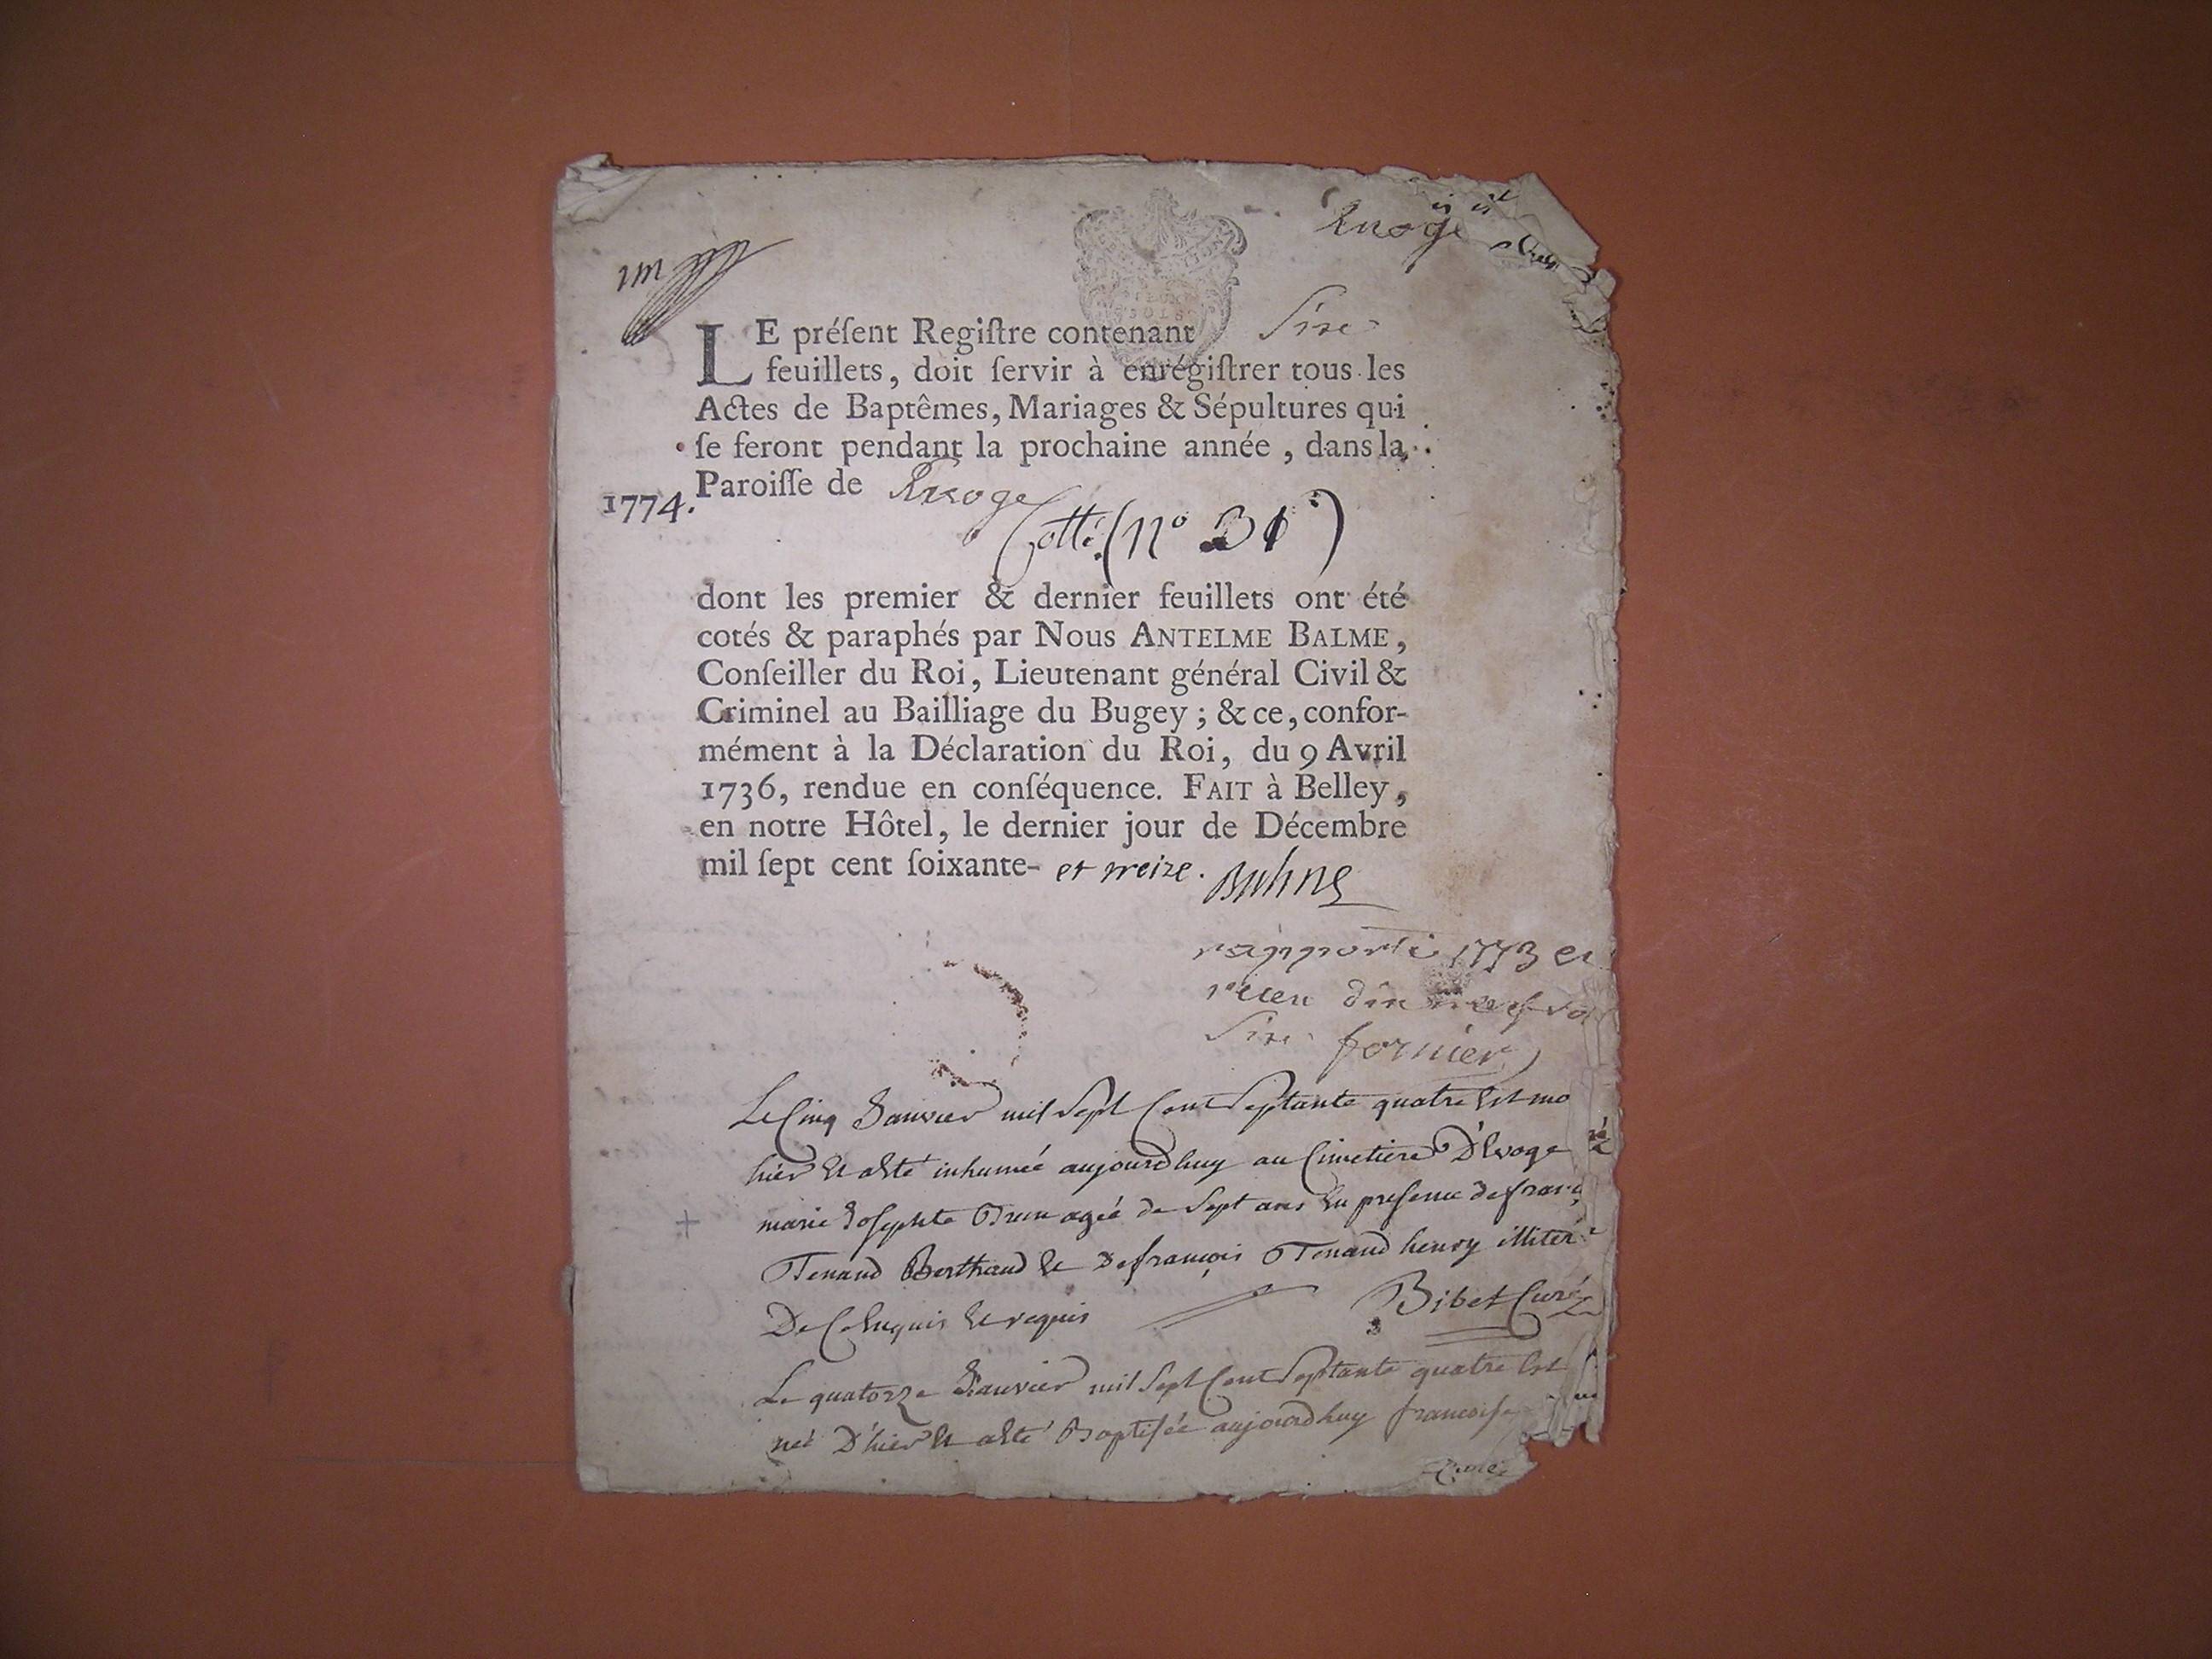 Evoge
un
LE préſent Regiſtre contenant Sixe
feuillets, doit ſervir à enrégiſtrer tous les
Actes de Baptêmes, Mariages & Sépultures qui
ſe feront pendant la prochaine année, dans la
Paroiſſe de Evoge
1774.
Cotté (n° 31)
dont les premier & dernier feuillets ont été
cotés & paraphés par Nous ANTELME BALME,
Conſeiller du Roi, Lieutenant général Civil &
Criminel au Bailliage du Bugey ; & ce, confor-
mément à la Déclaration du Roi, du 9 Avril
1736, rendue en conſéquence. FAIT à Belley,
en notre Hôtel, le dernier jour de Décembre
mil ſept cent ſoixante- et treize. Balme
rapporté 1773 et
receu dix neuf
Sixe fornier
Le Cinq Janvier mil Sept Cent Septante quatre Est mo
hier Et a été inhumée aujourdhuy au Cimetiere D'Evoge
marie Josephte agée de Sept ans En presence de franç
Tenand Berthand Et De françois Tenand henry illiteré
De Ce Enquis Et requis Bibet Curé
Le quatorze Janvier mil Sept Cent Septante quatre Est
neé D'hier Et a été Baptisée aujourdhuy francoise